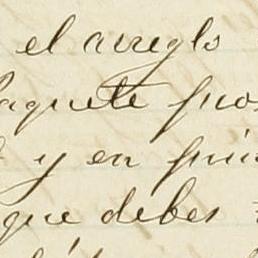 el arreglo
paquete pro
y en prin
que debes